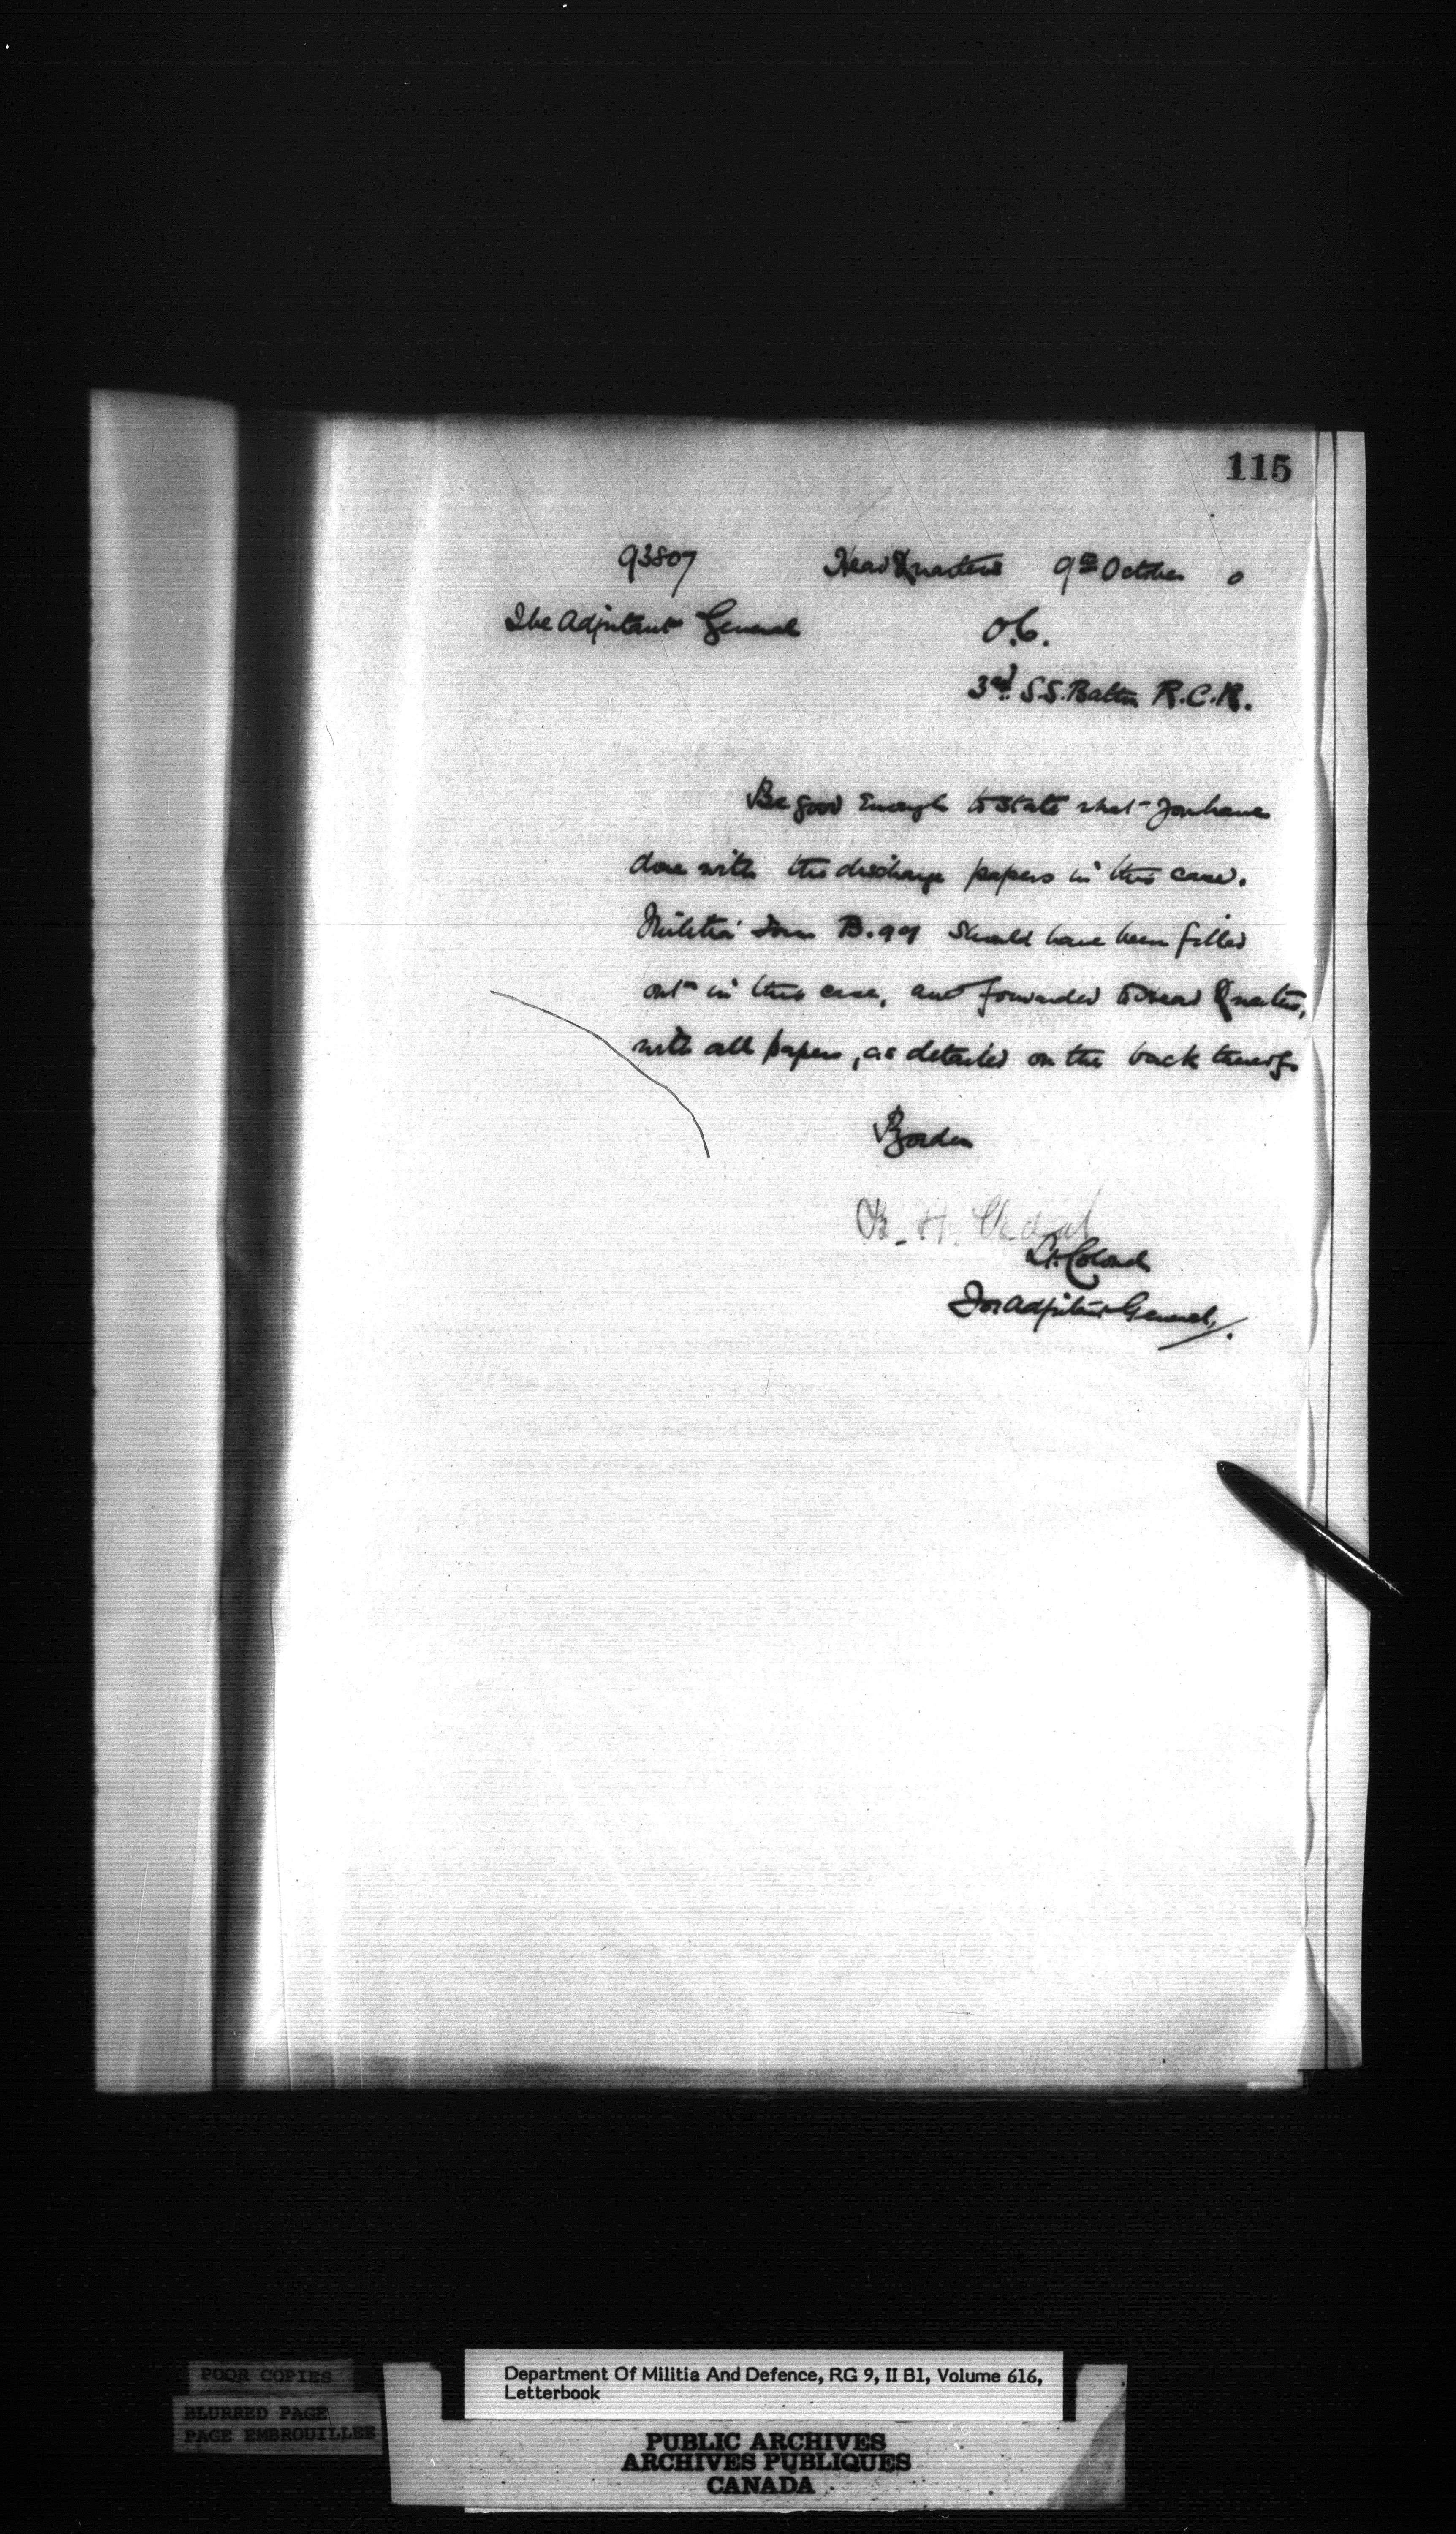 115
93807 Head Quarters 9th October 0
The Adjutant General O.C.
3rd S.S. Battn R.C.R.
Be good enough to state what you have
done with the discharge papers in this case.
Militia Form B.99 should have been filled
out in this case, and forwarded to Head Quarters,
with all papers, as detailed on the back thereof.
Borden
B. H. Vidal
Lt. Colonel
For Adjutant General.
POOR COPIES
BLURRED PAGE
PAGE EMBROUILLEE
Department Of Militia And Defence, RG 9, II B1, Volume 616,
Letterbook
PUBLIC ARCHIVES
ARCHIVES PUBLIQUES
CANADA